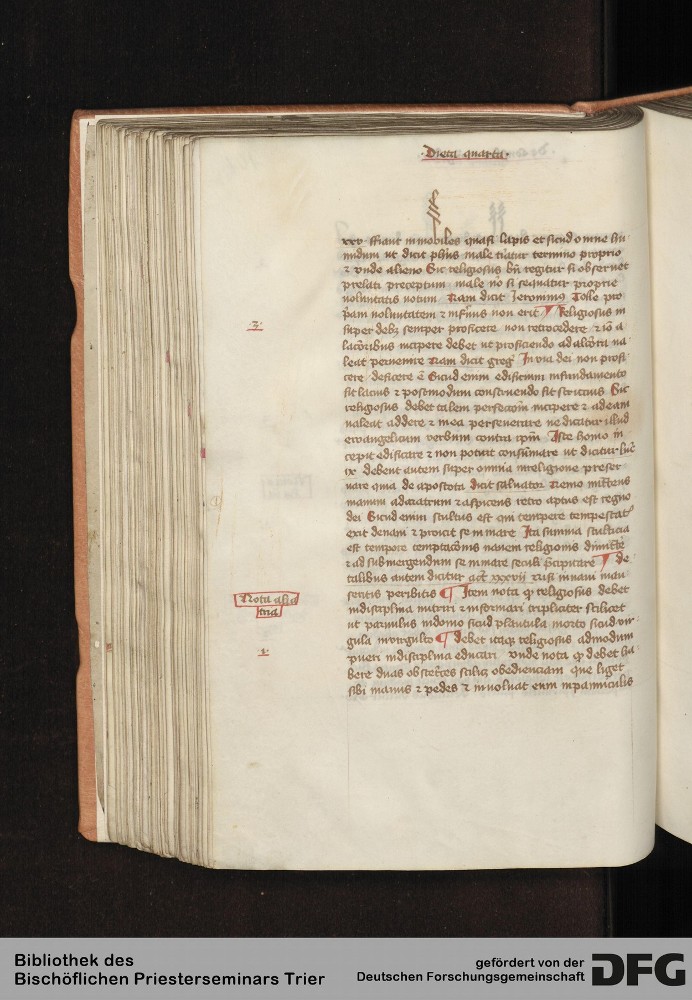 Dieta quarta
xxv ffiant inmobiles quasi lapis et sicud omne hu
midum ut dicit phūs male tūatur termino proprio
⁊ vnde alieno Sic religiosus bn̄ regitur si obseruet
prelati preceptum male nō si sequatur proprie
voluntatis votum Nam dicit Jeronimus Tolle pro
p̄am voluntatem ⁊ infnus non erit ¶ Religiosus in
super debꝫ semper proficere non retrocedere ⁊ iō a
lacōribus incipere debet ut proficiendo ad alc̄ora ua
leat peruenire Nam dicit greg᷒ In via dei non profi
cere deficere ē Sicud enim edificium infundamento
sit lacius ⁊ postmodum construendo sit strictius Sic
religiosus debet talem perfecc̄om incipere ⁊ ad eam
ualeat addere ⁊ in ea perseuerare ne dicatur illud
ewangelicum verbum contra ip̄m Iste homo in
cepit edificare ⁊ non potuit consūmare ut dicitur luc̄
ix debent autem super omnia in religione perseu
uare quia de apostota dicit saluator Nemo mittens
manum ad aratrum ⁊ aspiciens retro aptus est regno
dei Sicud enim stultus est qui tempore tempestatis
exit de naui ⁊ proicit se in mare Ita summa stulticia
est tempore temptacōnis nauem religionis dimitt̄e
⁊ ad submergendum se in mare seculi p̄cipitare ¶ de
talibus autem dicitur act᷒ xxvij Nisi in naui man
seritis peribitis ¶ Item nota ꝙ religiosus debet
in disciplina nutriri ⁊ informari tripliciter scilicet
ut paruulus in domo sicud plantula in orto sicud vir
gula in virgulto ¶ debet itaqꝫ religiosus ad modum
pueri in disciplina educari vnde nota ꝙ debet ha
bere duas obstet̄ces scilicꝫ obedienciam que liget
sibi manus ⁊ pedes ⁊ inuoluat eum in panniculis
3
Nota alia
tria
1
Bibliothek des
Bischöflichen Priesterseminars Trier
gefördert von der
Deutschen Forschungsgemeinschaft
DFG